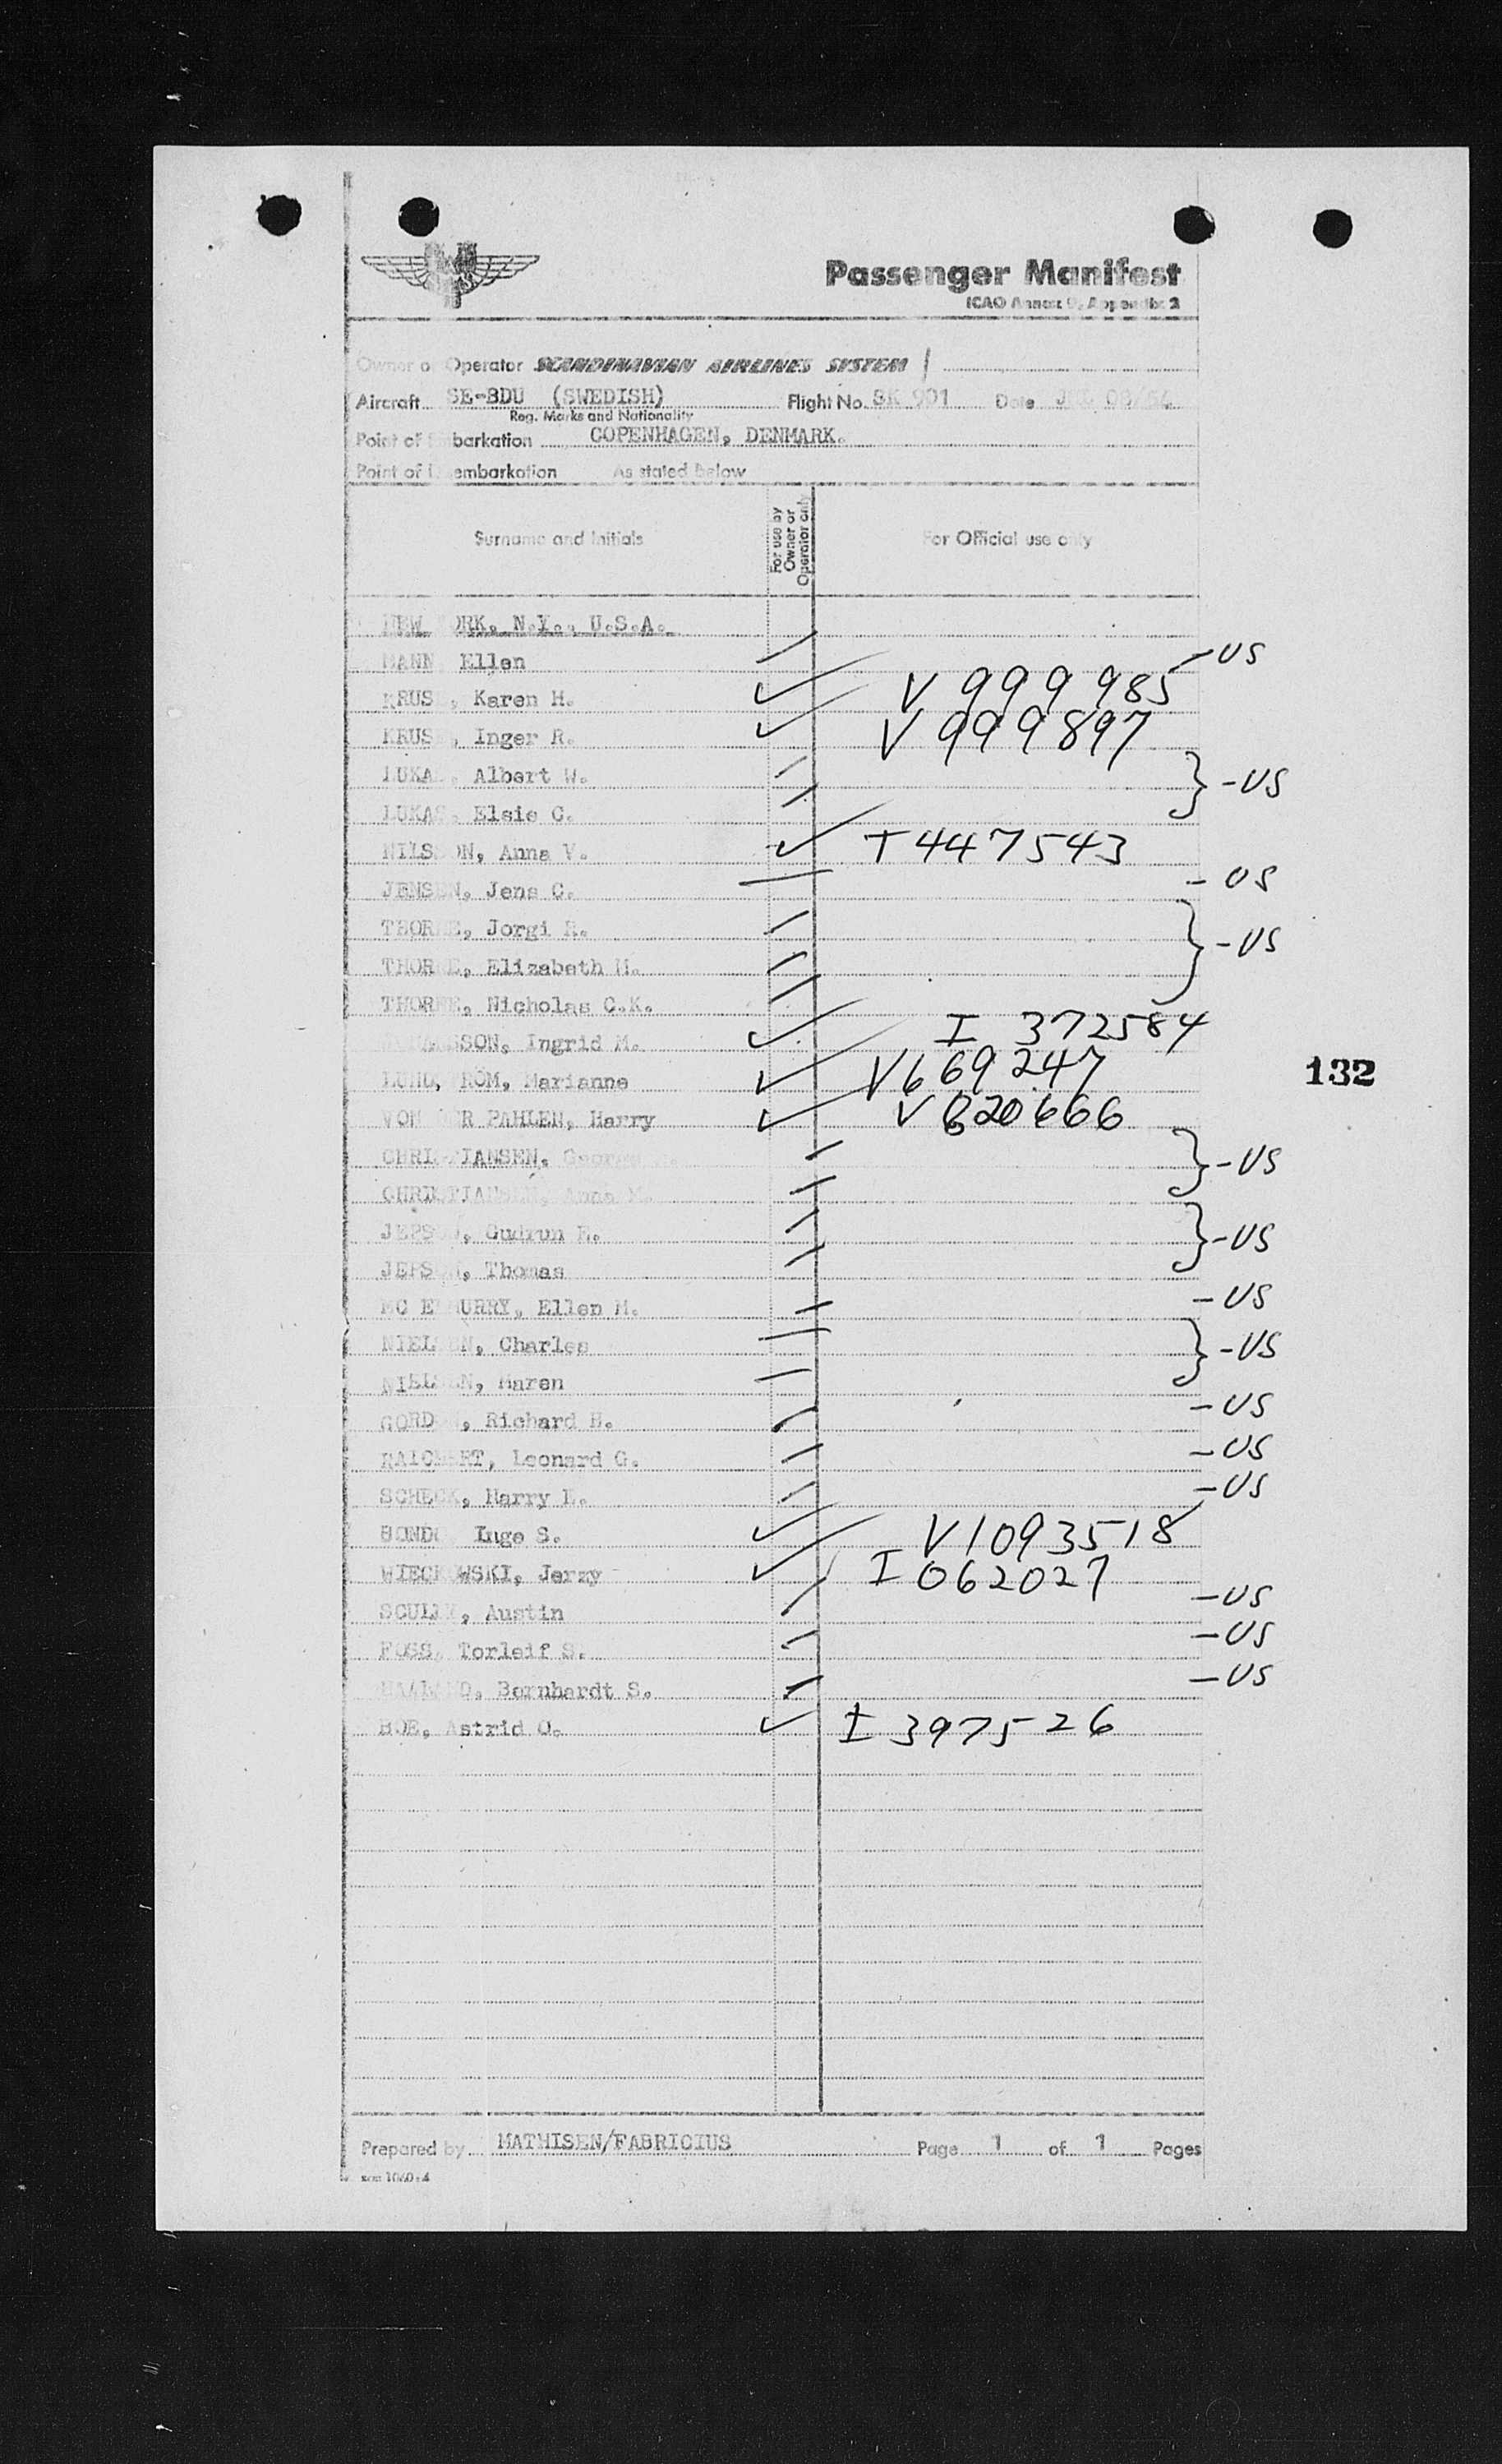 Passenger Manifest
ICAO Annex 9, Appendix 2
Owner or Operator SCANDINAVIAN AIRLINES SYSTEM
Aircraft SE-BDU (SWEDISH) Flight No. SK 901 Date 08/54
Reg. Marks and Nationality
Point of Embarkation COPENHAGEN, DENMARK.
Point of Disembarkation As stated below
Surname and Initials For use by Owner or Operator only For Official use only
NEW YORK, N.Y., U.S.A.
MANN Ellen - US
KRUSE, Karen H. V 999 985
KRUSE, Inger R. V 999 897
LUKAS, Albert W. } - US
LUKAS, Elsie C.
NILSSON, Anna V. T 447543
JENSEN, Jens C. - US
THORNE, Jorgi R. } - US
THORNE, Elizabeth M.
THORNE, Nicholas C.K.
SSON, Ingrid M. I 372584
RÖM, Marianne V669247
VON DER PAHLEN, Harry V 820666
CHRISTIANSEN, George } - US
CHRISTIANSEN, Anna M.
JEPSEN, Gudrun } - US
JEPSEN, Thomas
MC E MURRY, Ellen M. - US
NIELSEN, Charles } - US
NIELSEN, Maren
GORDON, Richard H. - US
RAICHERT, Leonard G. - US
SCHECK, Harry - US
BONDO Inge S. V1093518
WIECKOWSKI, Jerzy I 062027
SCULLY, Austin - US
FOSS, Torleif S. - US
Bernhardt S. - US
BOE, Astrid O. I 397526
132
Prepared by MATHISEN/FABRICIUS Page 1 of 1 Pages